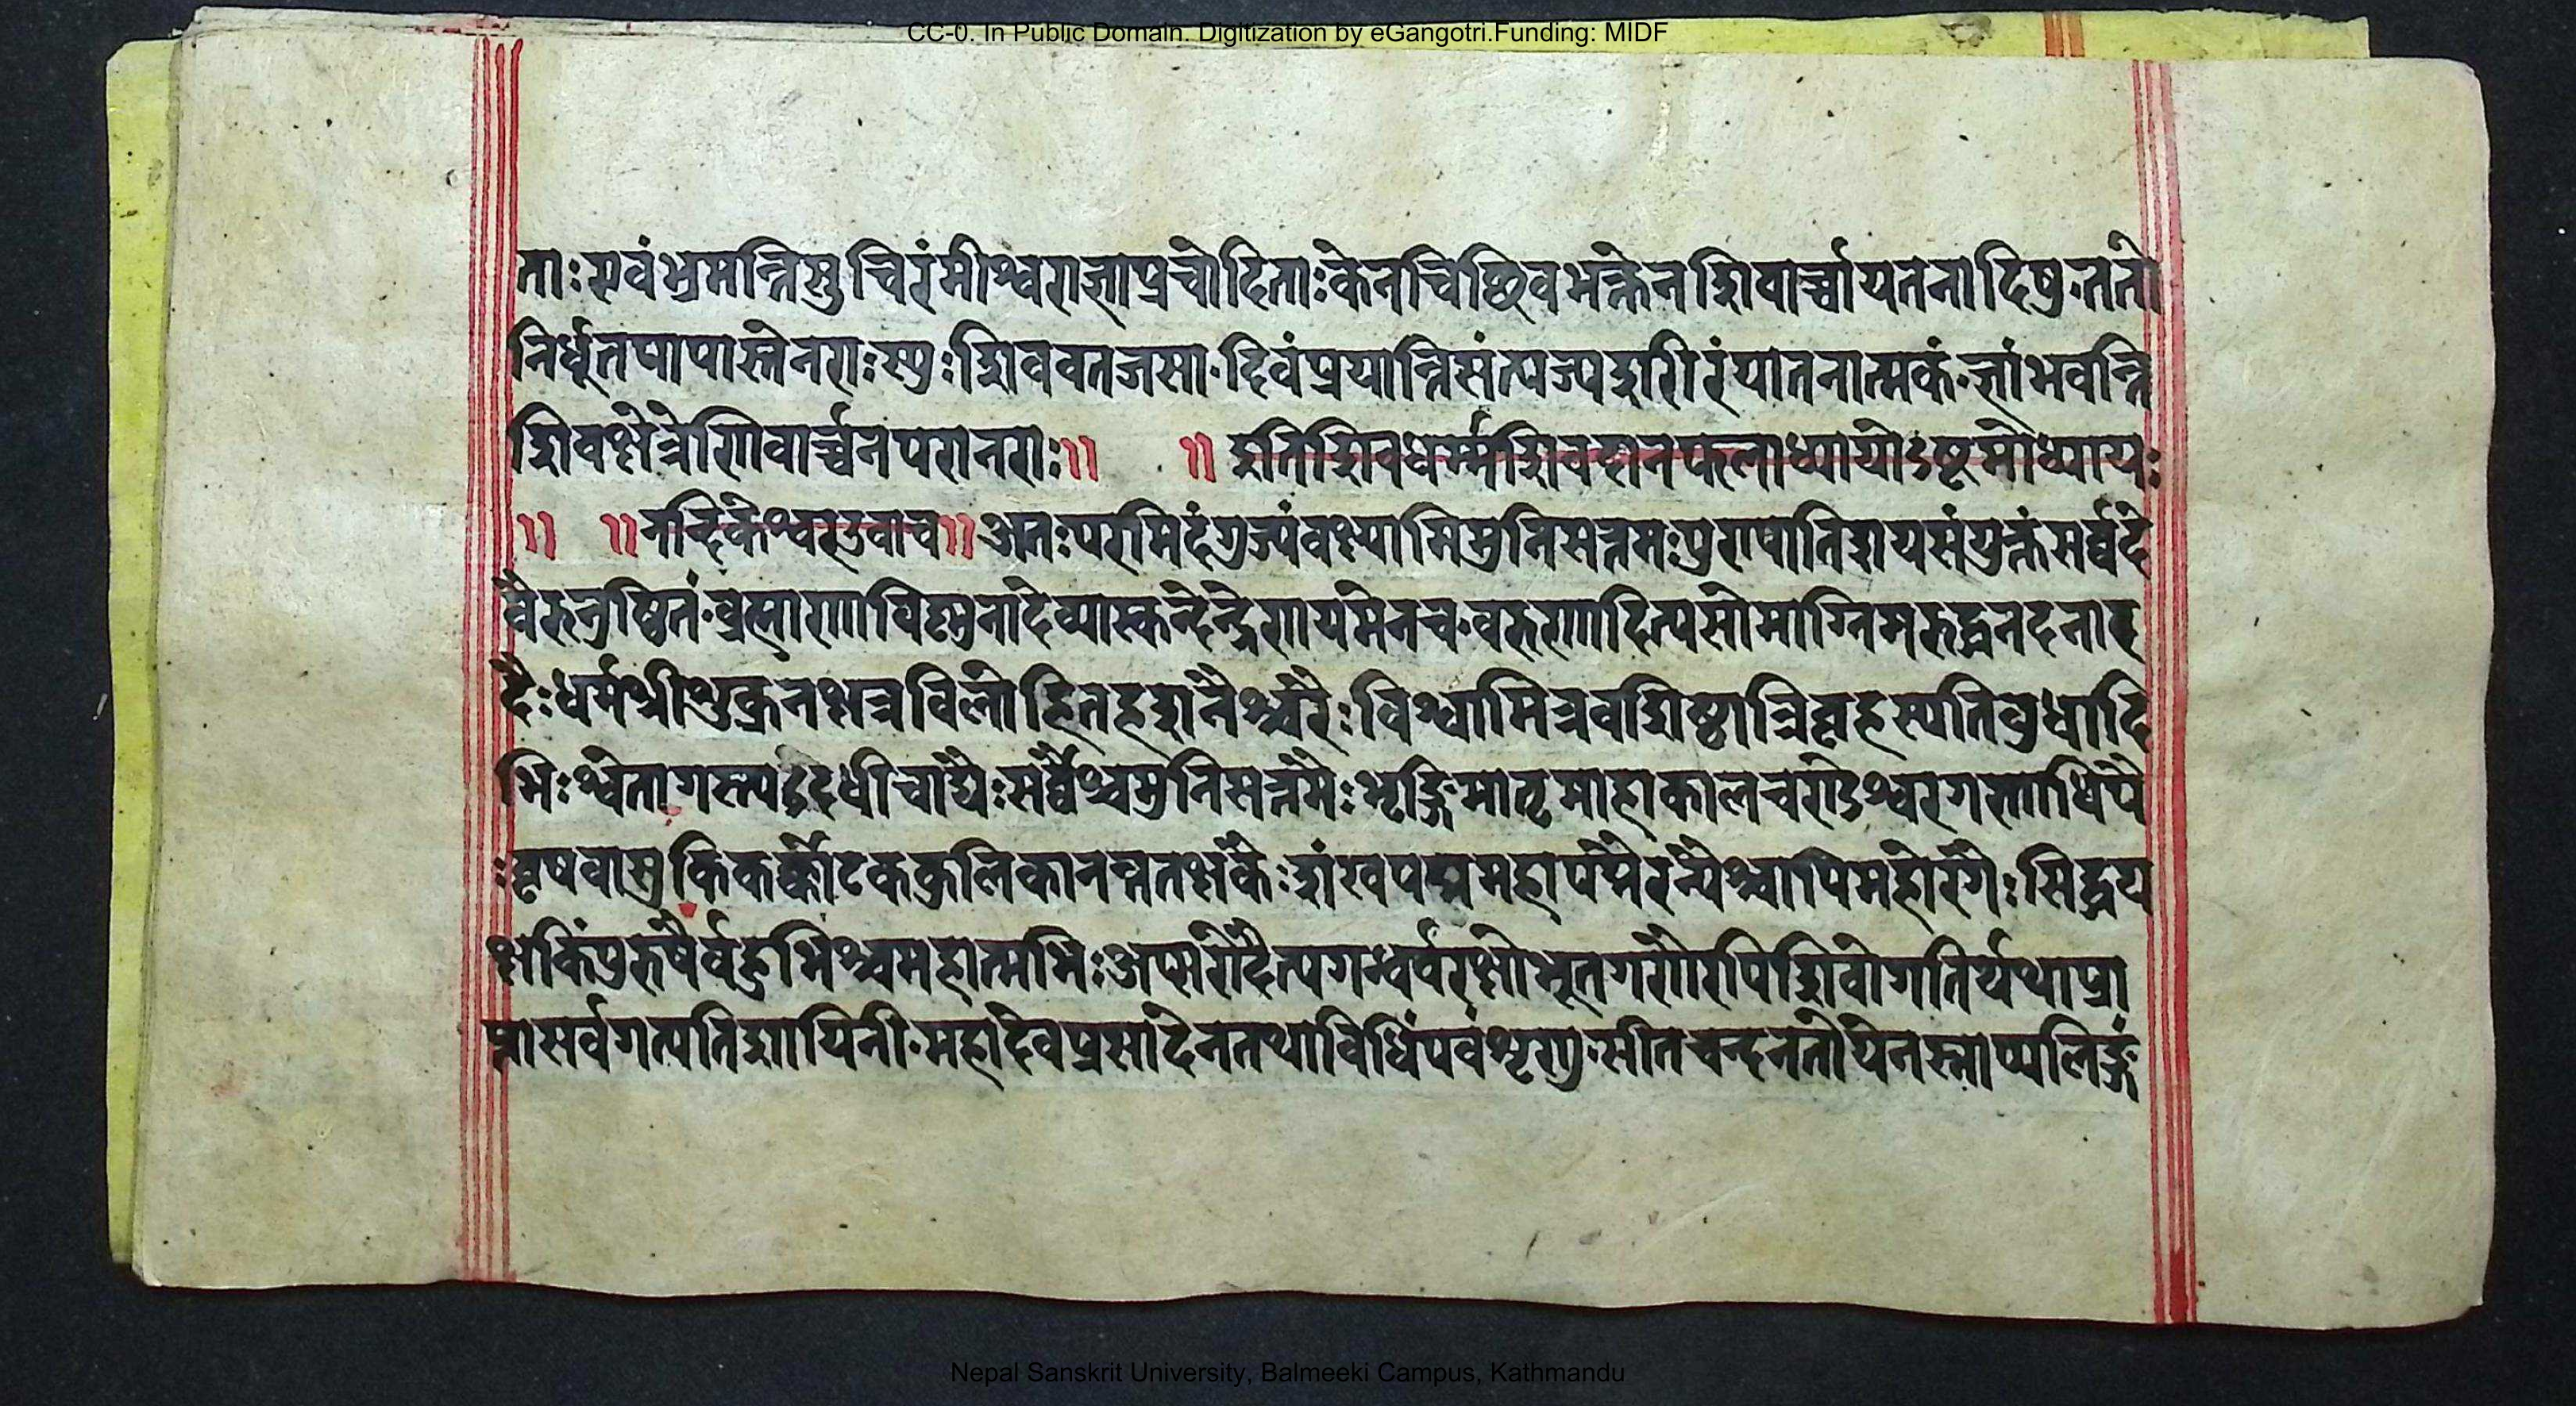 CC-0. In Public Domain. Digitization by eGangotri.Funding: MIDF
ताः एवं भ्रमन्ति सुचिरंमीश्वराज्ञाप्रचोदिताः केनचिच्छिवभक्तेन शिवार्च्चायतनादिषु ततो
निर्धूतपापास्ते नराः स्युः शिववतजसा दिवं प्रयान्ति संत्यज्य शरीरं यातनात्मकं भवन्ति
शिवक्षेत्रे शिवार्च्चनपरा नराः ॥ ॥ इति शिवधर्म्मे शिवदानफलाध्यायोऽष्टमोध्यायः
॥ ॥ नन्दिकेश्वर उवाच ॥ अतः परमिदं गुज्यं वक्ष्यामि मुनिसत्तमः पुरापातिशयसंयुक्तं सर्व्वदे
वैरनुष्ठितं ब्रह्मणा विष्णुना देव्या स्कन्देन्द्रेण यमेन च वरुणादित्यसोमाग्नि
दैः धर्मश्री शुक्रनक्षत्रविलोहित शनैश्चरैः विश्वामित्रवशिष्ठात्रिबृहस्पतिबुधादि
भिः श्वेतागस्त्यदधीचाद्यैः सर्व्वैश्च मुनिसत्तमैः भृङ्गिमातृमाहाकालचण्डेश्वरगणाधिपै
ः वृषवासुकिकर्क्कोटककुलिकानन्ततक्षकैः शंखपद्ममहापद्मैरन्यैश्चापि महोरगैः सिद्धय
क्षकिंपुरुषैर्वहुभिश्च महात्मभिः अप्सरोदैत्यगन्धर्वरक्षोभूतगणैरपि शिवो गतिर्यथा प्रा
प्ता सर्वगत्यतिशायिनी महादेवप्रसादेन तथा विधिं पवं शृणु सीतचन्दनतोयेन स्नाप्य लिङ्गं
Nepal Sanskrit University, Balmeeki Campus, Kathmandu